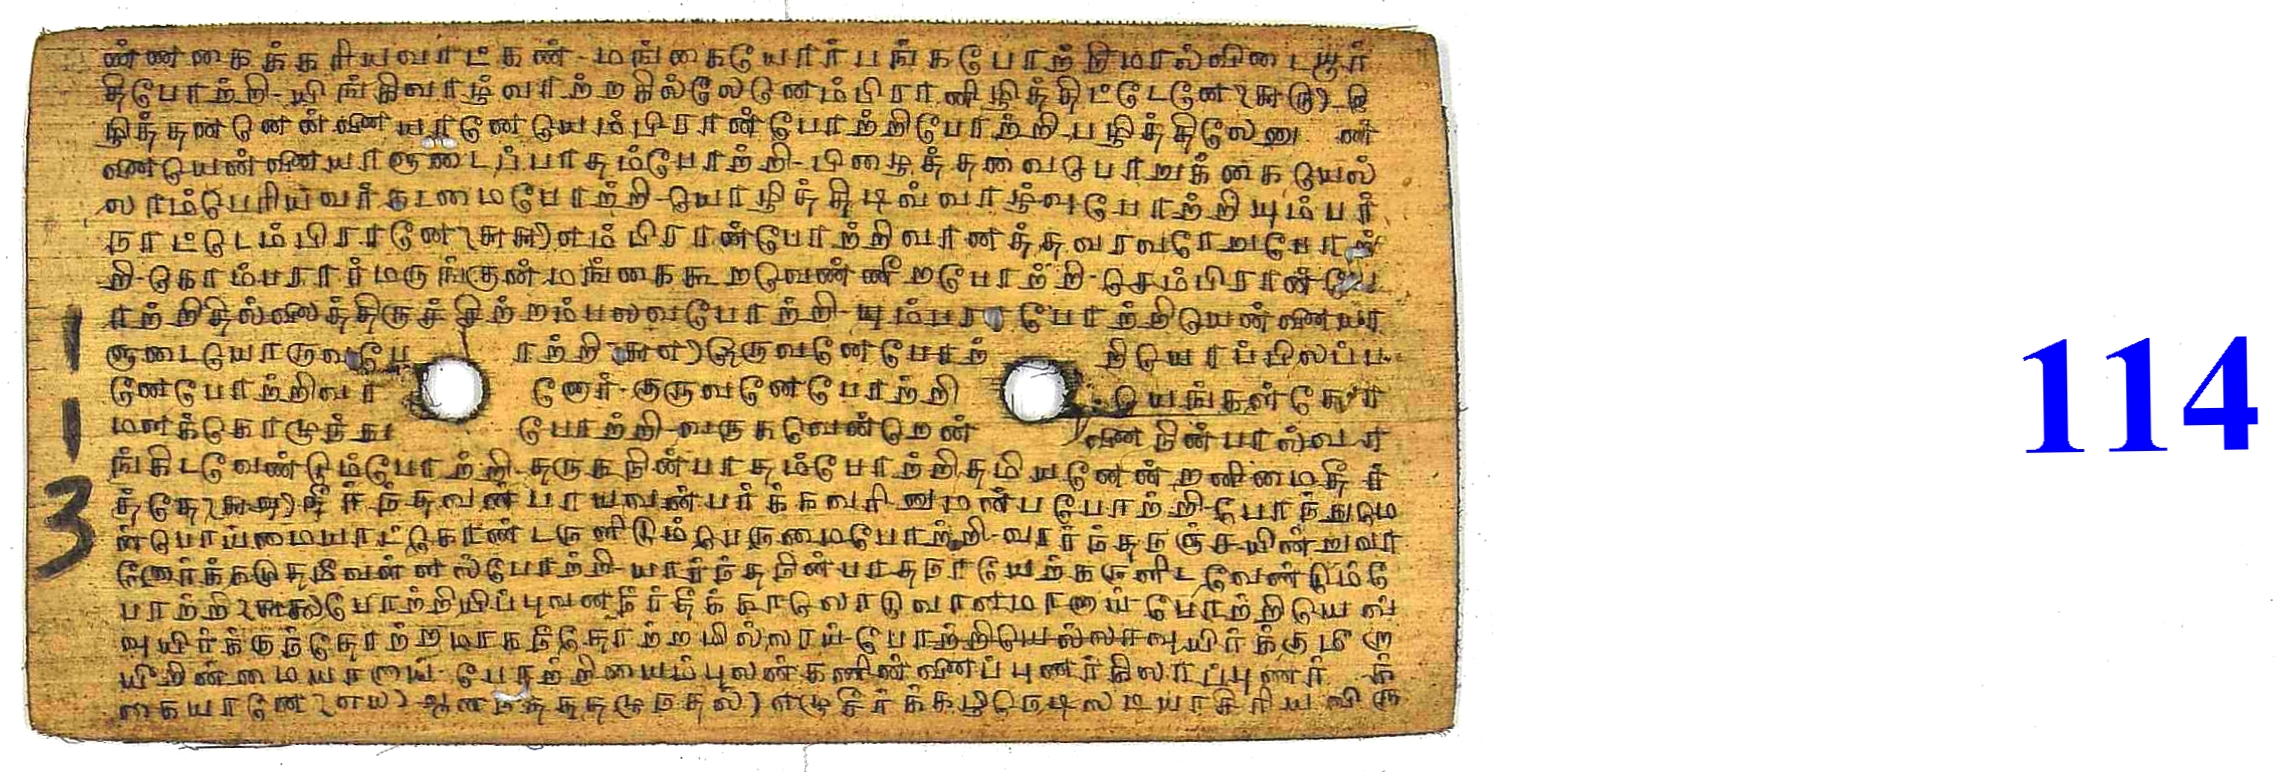 ண்ணகைக்கரியவாட்கண்-மங்கையோர்பங்கபோற்றிமால்விடையூர்
திபோற்றி-யிங்கிவாழ்வாற்றகில்லேனெம்பிரானிழித்திட்டேனே(௬௫)இ
ழித்தனனென்னையானேயெம்பிரான்போற்றிபோற்றி-பழித்திலேனு ன்
னையென்னையாளுடைப்பாதம்போற்றி-பிழைத்தவைபொறுக்கையெல்
லாம்பெரியவர்கடமைபோற்றி-யொழித்திடிவ்வாழ்வுபோற்றியும்பர்
நாட்டெம்பிரானே(௬௬)எம்பிரான்போற்றிவானத்தவரவரேறுபோற்
றி-கொம்பரார்மருங்குன்மங்கைகூறவெண்ணீறபோற்றி-செம்பிரான்போ
ற்றிதில்லைத்திருச்சிற்றம்பலவபோற்றி-யும்பராபோற்றியென்னையா
ளுடையொருவபோ ற்றி(௬௭)ஒருவனேபோற் றியொப்பிலப்ப
னேபோற்றிவா னோர்-குருவனேபோற்றி யெங்கள்கோ
மளக்கொழுந்து போற்றி-வருகவென்றென் னைநின்பால்வா
ங்கிடவேண்டும்போற்றி-தருகநின்பாதம்போற்றிதமியனேன்றனிமைதீர்
த்தே(௬௮)தீர்ந்தவன்பாயவன்பர்க்கவரினுமன்பபோற்றி-பேர்ந்துமெ
ன்பொய்மையாட்கொண்டருளிடும்பெருமைபோற்றி-வார்ந்தநஞ்சயின்றுவா
னோர்க்கமுதமீவள்ளல்போற்றி-யார்ந்தநின்பாதநாயேற்கருளிடவேண்டும்போ
ற்றி(௬௯)போற்றியிப்புவனநீர்தீக்காலொடுவானமானாய்-போற்றியெவ்
வுயிர்க்குந்தோற்றமாகநீதோற்றமில்லாய்-போற்றியெல்லாவுயிர்க்குமீறா
யீறின்மையானாய்-போற்றியைம்புலன்களின்னைப்புணர்கிலாப்புணர் க்
கையானே(௭௰)ஆனந்தத்தழுந்தல்)எழுசீர்க்கழிநெடிலடியாசிரியவிரு